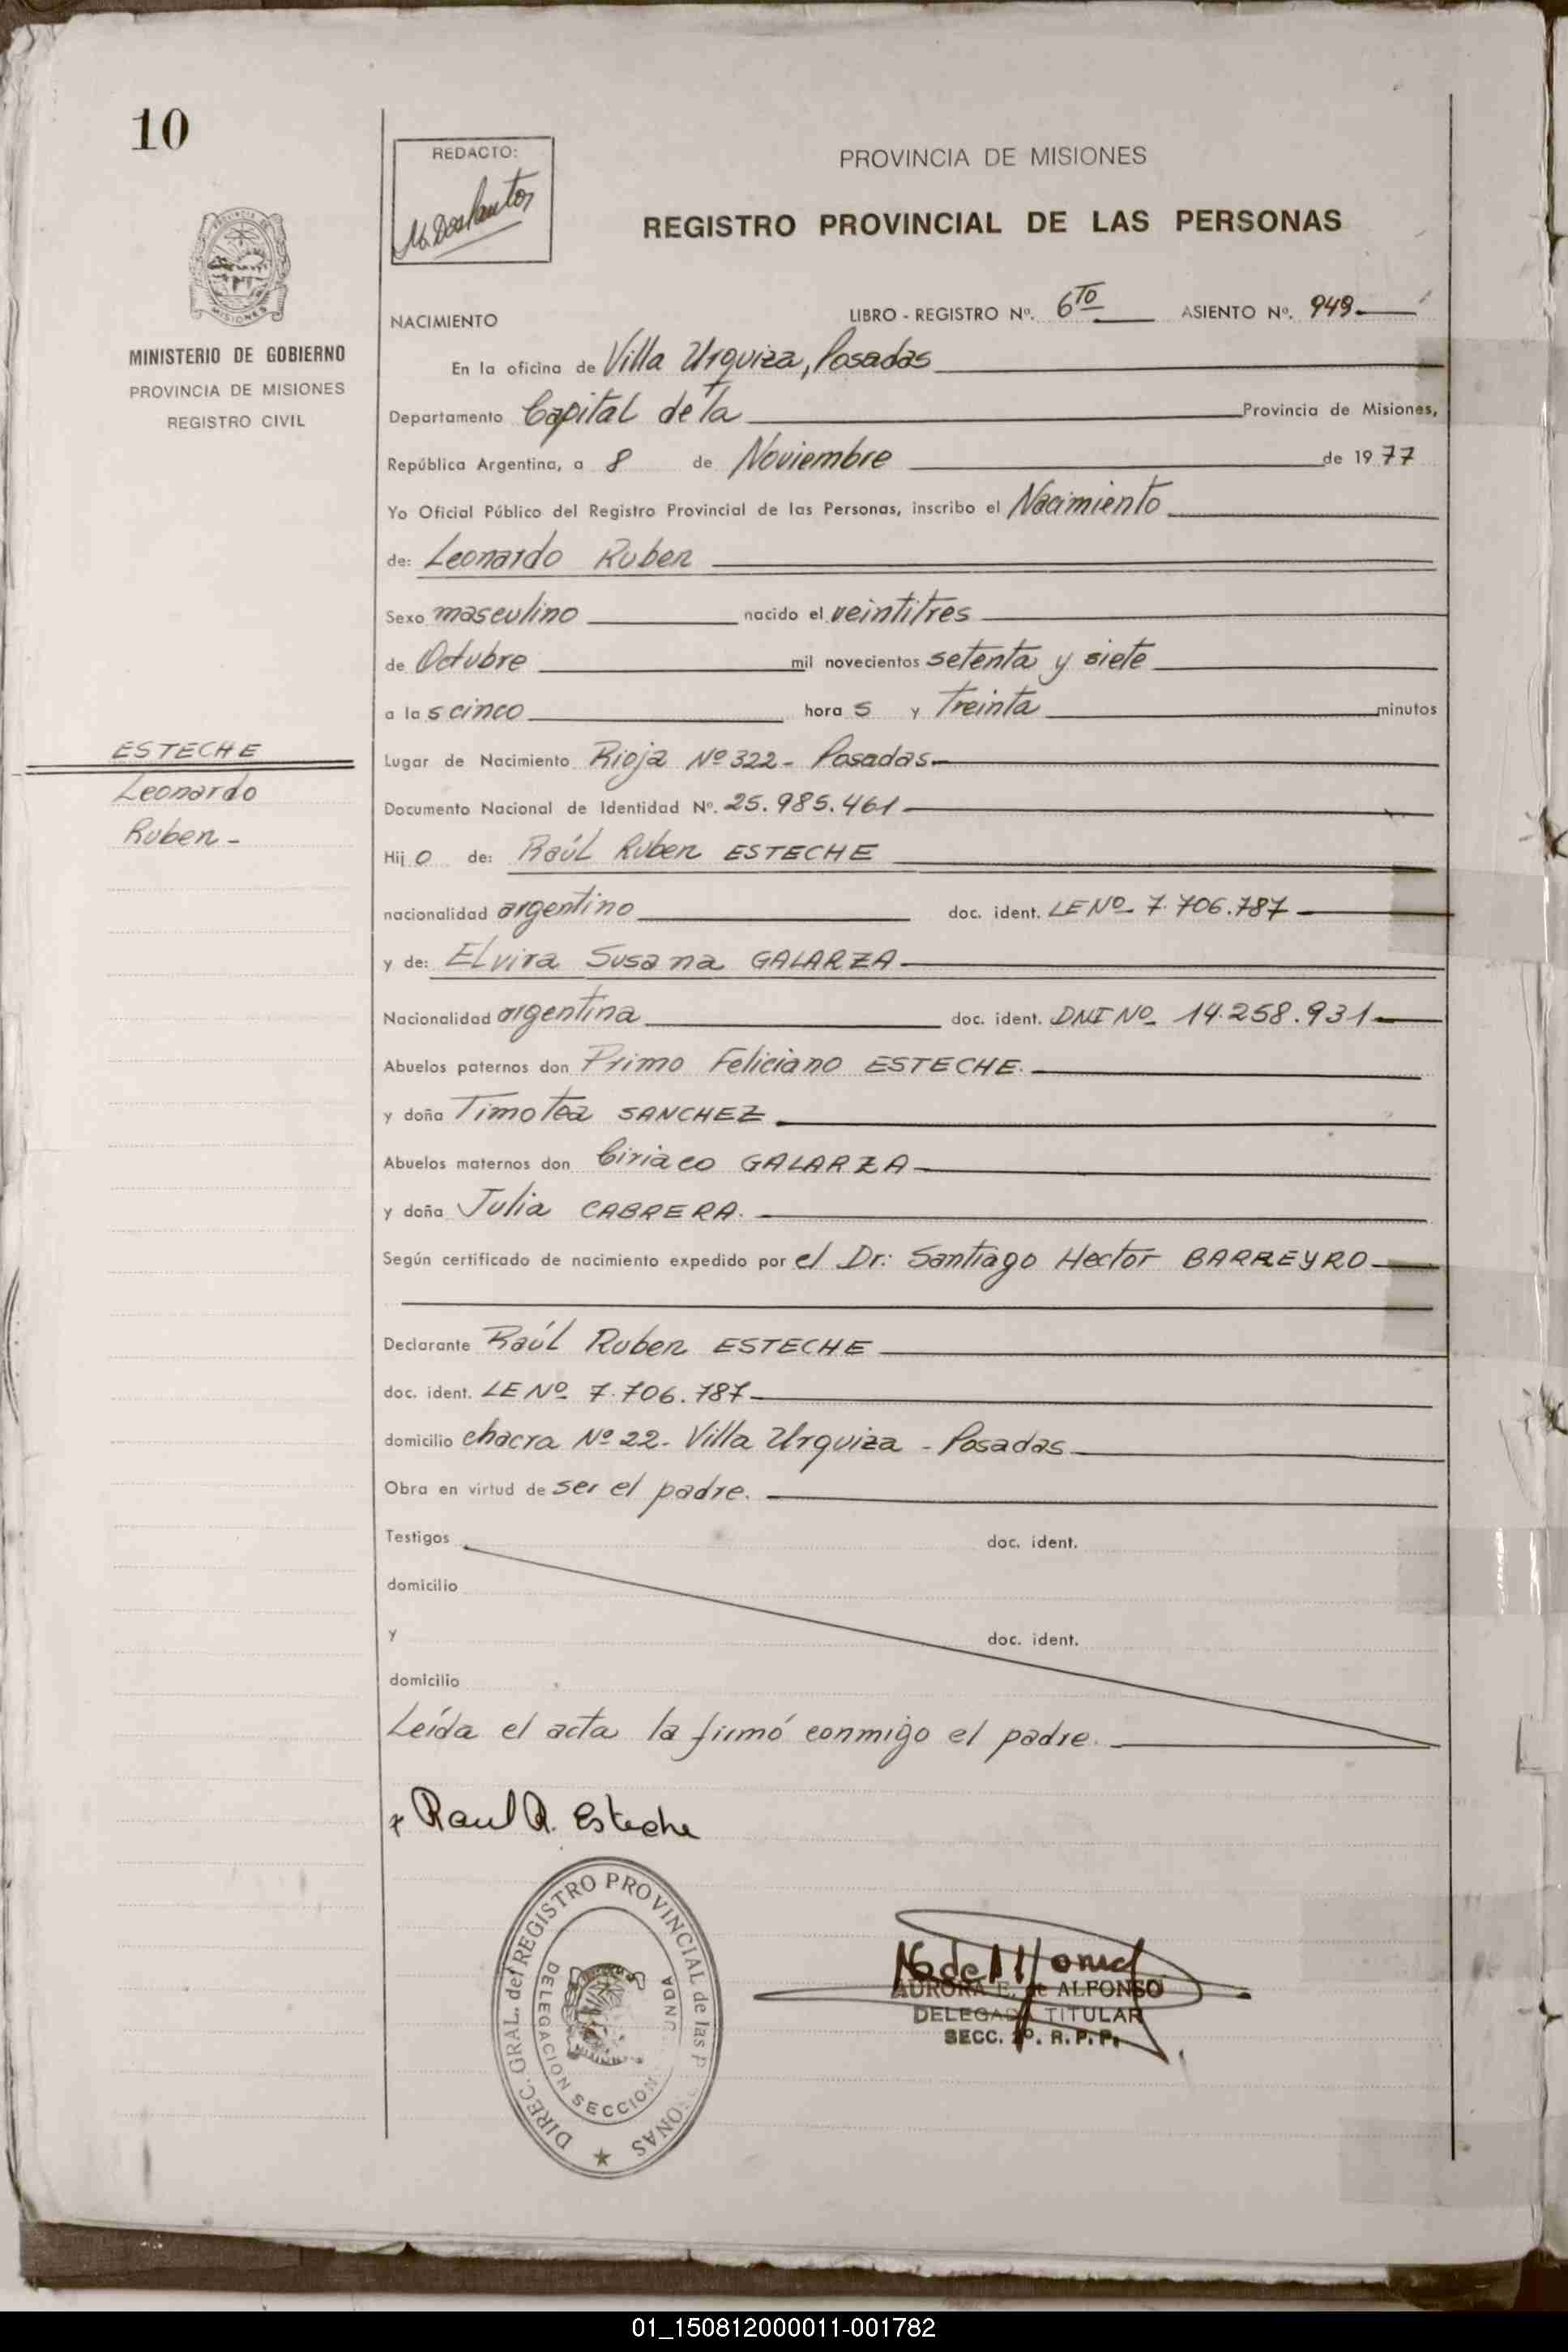 10
REDACTO:
M. Dos Santos
PROVINCIA DE MISIONES
REGISTRO PROVINCIAL DE LAS PERSONAS
PROVINCIA DE
MISIONES
MINISTERIO DE GOBIERNO
PROVINCIA DE MISIONES
REGISTRO CIVIL
NACIMIENTO LIBRO - REGISTRO Nº. 6TO ASIENTO Nº. 949
En la oficina de Villa Urquiza, Posadas
Departamento Capital de la Provincia de Misiones,
República Argentina, a 8 de Noviembre de 1977
Yo Oficial Público del Registro Provincial de las Personas, inscribo el Nacimiento
de: Leonardo Ruben
Sexo masculino nacido el veintitres
de Octubre mil novecientos setenta y siete
a las cinco horas y treinta minutos
ESTECHE
Leonardo
Ruben -
Lugar de Nacimiento Rioja Nº 322 - Posadas
Documento Nacional de Identidad Nº. 25.985.461
Hijo de: Raúl Ruben ESTECHE
nacionalidad argentino doc. ident. LE Nº 7.706.787
y de: Elvira Susana GALARZA
Nacionalidad argentina doc. ident. DNI Nº 14.258.931
Abuelos paternos don Primo Feliciano ESTECHE.
y doña Timotea SANCHEZ
Abuelos maternos don Ciriaco GALARZA
y doña Julia CABRERA.
Según certificado de nacimiento expedido por el Dr: Santiago Hector BARREYRO
Declarante Raúl Ruben ESTECHE
doc. ident. LE Nº 7.706.787
domicilio chacra Nº 22 - Villa Urquiza - Posadas
Obra en virtud de ser el padre.
Testigos doc. ident.
domicilio
y doc. ident.
domicilio
Leída el acta la firmó conmigo el padre.
x Raul R. Esteche
DIREC. GRAL. del REGISTRO PROVINCIAL de las P ONAS
DELEGACION SECCION UNDA
AURORA E. de ALFONSO
DELEGADA TITULAR
SECC. 2º. R. P. P.
01_150812000011-001782